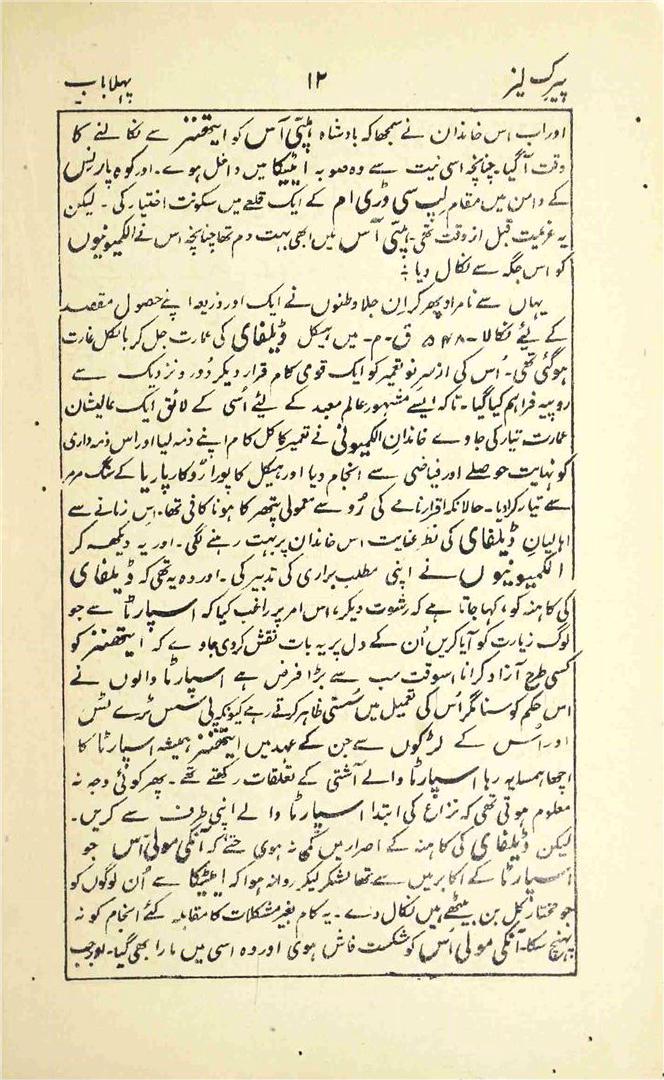 پیرک لیز ۱۲ پہلا باب
اور اب اس خاندان نے سمجھا کہ بادشاہ ہپّی آس کو ایتھنز سے نکالنے کا
وقت آگیا۔ چنانچہ اسی نیت سے وہ صوبہ اٹیکا میں داخل ہوے۔ اور کوہ پارنس
کے دامن میں مقام لپ سی ڈری ام کے ایک قلعے میں سکونت اختیار کی ۔ لیکن
یہ عزیمت قبل از وقت تھی۔ ہپّی آس میں ابھی بہت دم تھا چنانچہ اس نے الکمیونیوں
کو اس جگہ سے نکال دیا ؛
یہاں سے نامراد پھر کر ان جلاوطنوں نے ایک اور ذریعہ اپنے حصول مقصد
کے لیٔے نکالا۔ ۵۴۸ ق۔م۔ میں ہیکل ڈیلفای کی عمارت جل کر بالکل غارت
ہوگئی تھی۔ اُس کی ازسرِ نو تعمیر کو ایک قومی کام قرار دیکر دُور و نزدیک سے
روپیہ فراہم کیا گیا۔ تاکہ ایسے مشہور عالم معبد کے لیٔے اُسی کے لائق ایک عالیشان
عمارت تیار کی جاوے خاندان الکمیونی نے تعمیر کا کل کام اپنے ذمہ لیا اور اس ذمہ داری
کو نہایت حوصلے اور فیاضی سے انجام دیا اور ہیکل کا پورا روکار پاریا کے سنگ مرمر
سے تیار کرادیا۔ حالانکہ اقرارنامے کی رُو سے معمولی پتھر کا ہونا کافی تھا۔ اس زمانے سے
اہالیان ڈیلفای کی نظر عنایت اس خاندان پر بہت رہنے لگی۔ اور یہ دیکھ کر
الکمیونیوں نے اپنی مطلب براری کی تدبیر کی۔ اور وہ یہ تھی کہ ڈیلفای
کی کاہنہ کو، کہا جاتا ہے کہ رشوت دیکر، اس امر پر راغب کیا کہ اسپارٹا سے جو
لوگ زیارت کو آیا کریں اُن کے دل پر یہ بات نقش کردی جاوے کہ ایتھنز کو
کسی طرح آزاد کرانا اسوقت سب سے بڑا فرض ہے اسپارٹا والوں نے
اس حکم کو سنا مگر اُس کی تعمیل میں سُستی ظاہر کرتے رہے کیونکہ پی سس ٹرے ٹس
اور اُس کے لڑکوں سے جن کے عہد میں ایتھنز ہمیشہ اسپارٹا کا
اچھا ہمسایہ رہا اسپارٹا والے آشتی کے تعلقات رکھتے تھے ۔ پھر کوئی وجہ نہ
معلوم ہوتی تھی کہ نزاع کی ابتدا اسپارٹا والے اپنی طرف سے کریں۔
لیکن ڈیلفای کی کاہنہ کے اصرار میں کمی نہ ہوی حتےٰ کہ آنکی مولی آس جو
اسپارٹا کے اکابر میں سے تھا لشکر لیکر روانہ ہوا کہ اٹیکا سے اُن لوگوں کو
جو مختار کل بن بیٹھے ہیں نکال دے۔ یہ کام بغیر مشکلات کا مقابلہ کئے انجام کو نہ
پہنچ سکا۔ آنکی مولی آس کو شکست فاش ہوی اور وہ اسی میں مارا بھی گیا۔